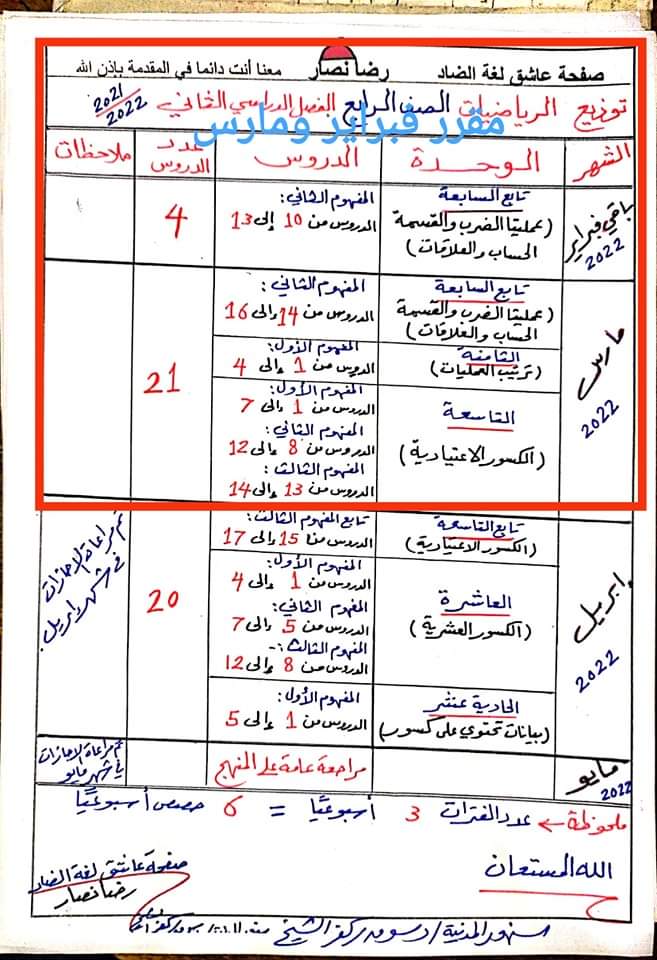 صفحة عاشق لغة الضاد رضا نصار معنا أنت دائما في المقدمة بإذن الله
توزيع الرياضيات الصف الرابع الفصل الدراسي الثاني 2021/2022
مقرر فبراير ومارس
الشهر الوحدة الدروس عدد الدروس ملاحظات
باقي فبراير 2022
تابع السابعة
(عمليتا الضرب والقسمة
الحساب والعلاقات)
المفهوم الثاني:
الدروس من 10 إلى 13
4
مارس 2022
تابع السابعة
(عمليتا الضرب والقسمة
الحساب والعلاقات)
المفهوم الثاني:
الدروس من 14 وإلى 16
الثامنة
(ترتيب العمليات)
المفهوم الأول:
الدروس من 1 وإلى 4
التاسعة
(الكسور الاعتيادية)
المفهوم الأول:
الدروس من 1 وإلى 7
المفهوم الثاني:
الدروس من 8 وإلى 12
المفهوم الثالث:
الدروس من 13 وإلى 14
21
إبريل 2022
تابع التاسعة
(الكسور الاعتيادية)
تابع المفهوم الثالث:
الدروس من 15 وإلى 17
العاشرة
(الكسور العشرية)
المفهوم الأول:
الدروس من 1 وإلى 4
المفهوم الثاني:
الدروس من 5 وإلى 7
المفهوم الثالث:-
الدروس من 8 وإلى 12
الحادية عشر
(بيانات تحتوي على كسور)
المفهوم الأول:
الدروس من 1 وإلى 5
20
تم مراعاة الإجازات
في شهر إبريل.
مايو 2022
مراجعة عامة على المنهج
تم مراعاة الإجازات
في شهر مايو
ملحوظة ← عدد الفترات 3 أسبوعيًا = 6 حصص أسبوعيًا
الله المستعان
صفحة عاشق لغة الضاد
رضا نصار
سنهور المدينة / دسوق / كفر الشيخ